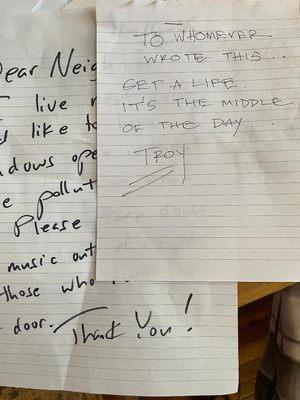 Dear Neig
I live n
like to
ndows ope
pollut
Please
music out
those who
door. Thank You!
TO WHOMEVER
WROTE THIS...
GET A LIFE.
IT'S THE MIDDLE
OF THE DAY...
TROY